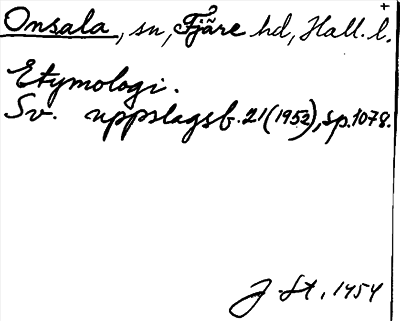 +
Onsala, sn, Fjäre hd, Hall. l.
Etymologi.
Sv. uppslagsb. 21 (1952), sp. 1078.
J. St. 1954